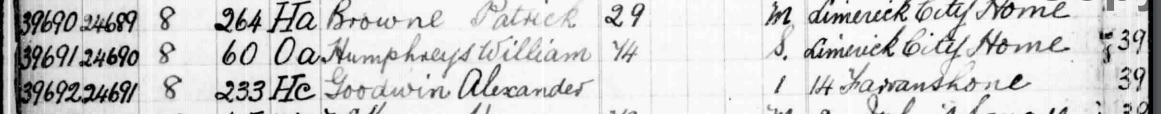 39690 24689 8 264 Ha Browne Patrick 29 M Limerick City Home
39691 24690 8 60 Oa Humphreys William 74 S. Limerick City Home 39
39692 24691 8 233 Hc Goodwin Alexander 1 14 Farranshone 39